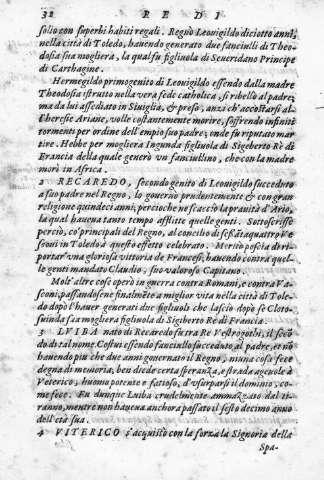 32 R E D I
solio con superbi habiti regali. Regnò Leouigildo diciotto anni,
nella città di Toledo, hauendo generato due fanciulli di Theo-
dosia sua mogliera, la qual fu figliuola di Seueridano Principe
di Carthagine.
Hermegildo primogenito di Leouigildo essendo dalla madre
Theodosia istrutto nella vera fede catholica, si ribellò al padre;
ma da lui assediato in Siuiglia, & preso, anzi ch'accostarsi al-
l'heresie Ariane, volle costantemente morire, soffrendo infiniti
tormenti per ordine dell'empio suo padre; onde fu riputato mar
tire. Hebbe per mogliera Ingunda figliuola di Sigeberto Rè di
Francia della quale generò vn fanciullino, che con la madre
morì in Africa.
2 RECAREDO, secondo genito di Leouigildo succedute
a suo padre nel Regno, lo gouernò prudentemente & con gran
religione quindeci anni; percioche nè scacciò la prauità d'Ario,
la qual haueua tanto tempo afflitte quelle genti. Sottoscrisse
perciò, co' principali del Regno, al concilio di sessãtaquattro Ve
scoui in Toledo à questo effetto celebrato. Meritò poscia di ri-
portar' vna gloriosa vittoria de' Francesi, hauendo contra quel-
le genti mandato Claudio, suo valoroso Capitano.
Molt'altre cose operò in guerra contra Romani, e contra Va-
sconi, passandosene finalmẽte a miglior vita nella città di Tole-
do dopò l'hauer generati due figliuoli che lasciò dopo se Cloto-
suinda sua mogliera figliuola di Sigiberto Rè di Francia.
3 LVIBA nato di Recaredo fu tra Re Vestrogothi, il secõ
do di tal nome. Costui essendo fanciullo succedutò al padre, et nõ
hauendo più che due anni gouernato il Regno, niuna cosa fece
degna di memoria, ben diede certa speranza, e strada ageuole à
Veterico, huomo potente e fatioso, d'vsurparsi il dominio, co-
me fece. Fu dunque Luiba crudelmente ammazzato dal ti-
ranno, mentre non haueua anchora passato il sesto decimo anno
dell'età sua.
4 VITERICO s'acquistò con la forza la Signoria della
Spa-